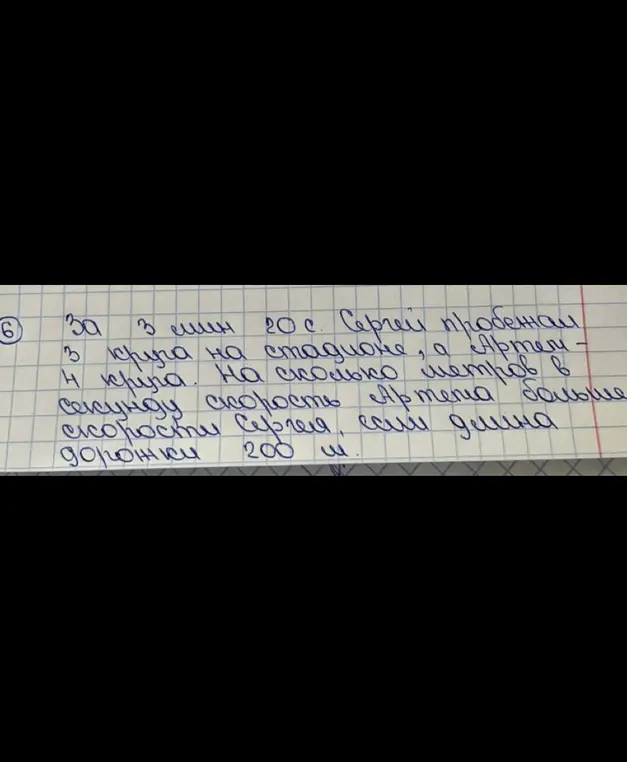 6 За 3 мин 20 с. Сергей пробежал
3 круга на стадионе, а Артем -
4 круга. На сколько метров в
секунду скорость Артема больше
скорости Сергея, если длина
дорожки 200 м.